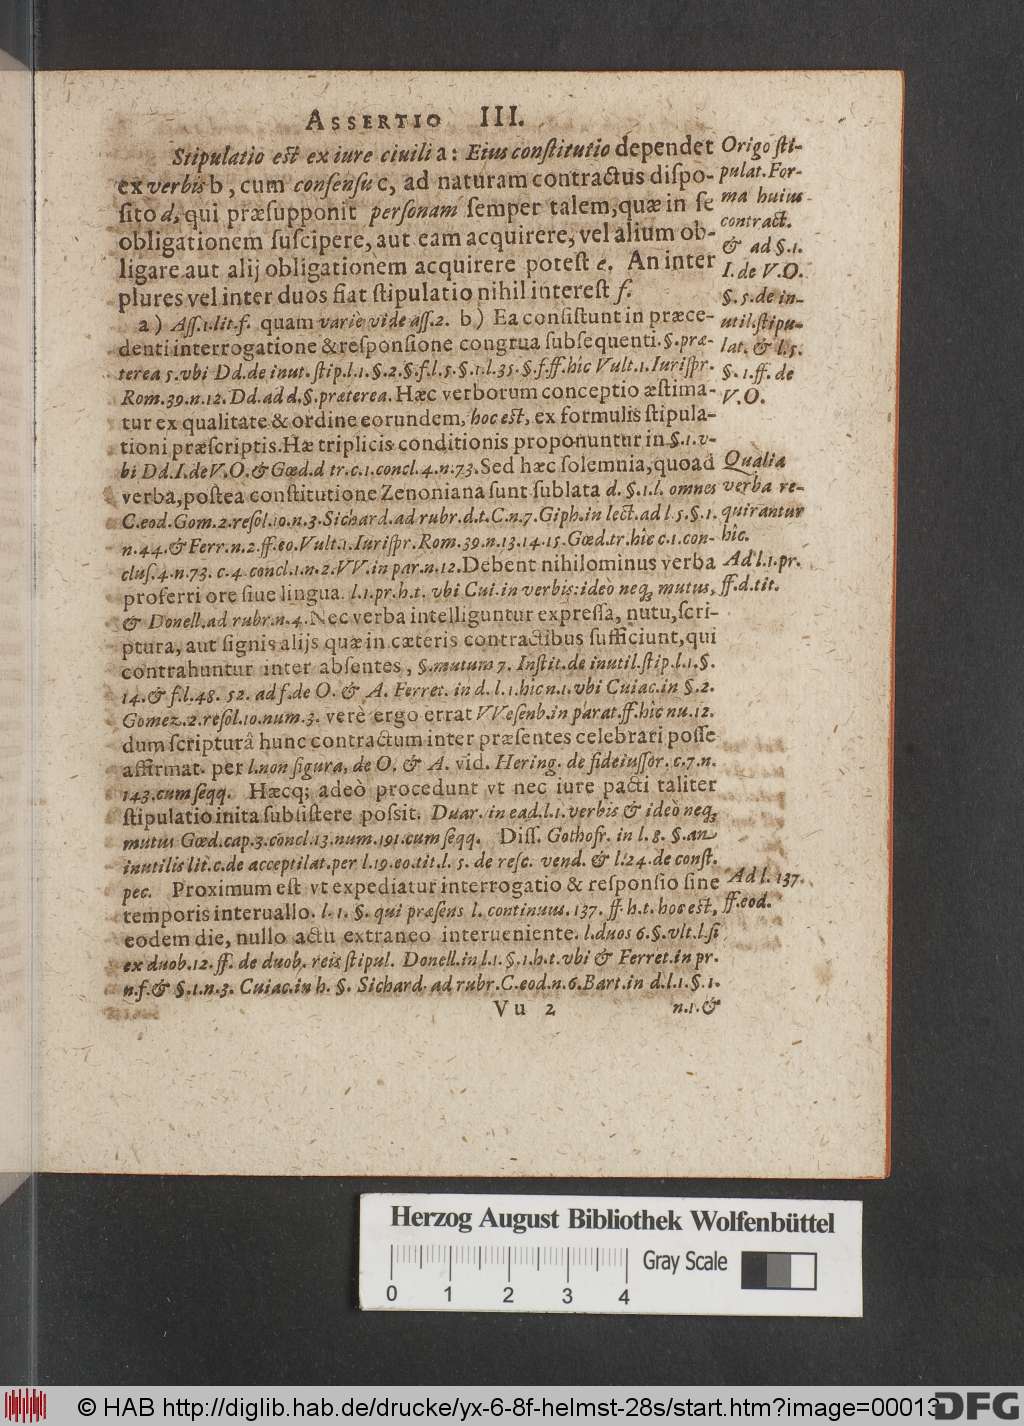 ASSERTIO III.
Stipulatio est ex iure ciuili a: Eius constitutio dependet
ex verbis b, cum consensu c, ad naturam contractus dispo-
sito d, qui præsupponit personam semper talem, quæ in se
obligationem suscipere, aut eam acquirere, vel alium ob-
ligare aut alij obligationem acquirere potest e. An inter
plures vel inter duos fiat stipulatio nihil interest f.
a) Ass.1.lit.f. quam varie vide ass.2. b) Ea consistunt in præce-
denti interrogatione & responsione congrua subsequenti. §.præ-
terea 5. vbi Dd. de inut. stip. l.1.§.2.§.f.l.5.§.1.l.35.§.f.ff.hîc Vult.1.Iurispr.
Rom.39.n.12. Dd. ad d.§.præterea. Hæc verborum conceptio æstima-
tur ex qualitate & ordine eorundem, hoc est, ex formulis stipula-
tioni præscriptis. Hæ triplicis conditionis proponuntur in §.1.v-
bi Dd.I.de V.O. & Gœd.d tr.c.1.concl.4.n.73. Sed hæc solemnia, quoad
verba, postea constitutione Zenoniana sunt sublata d. §.1.l. omnes
C.eod.Gom.2.resol.10.n.3.Sichard.ad rubr.d.t.C.n.7.Giph.in lect.ad l.5.§.1.
n.44.& Ferr.n.2.ff.eo.Vult.1.Iurispr.Rom.39.n.13.14.15.Gœd.tr.hîc c.1.con-
clus.4.n.73. c.4.concl.1.n.2.VV.in par.n.12. Debent nihilominus verba
proferri ore siue lingua. l.1.pr.h.t. vbi Cui.in verbis: ideò neq; mutus,
& Donell.ad rubr.n.4. Nec verba intelliguntur expressa, nutu, scri-
ptura, aut signis alijs quæ in cæteris contractibus sufficiunt, qui
contrahuntur inter absentes, §.mutum 7. Instit. de inutil. stip. l.1.§.
14.& f.l.48. 52. ad f. de O. & A. Ferret. in d. l.1.hîc n.1. vbi Cuiac.in §.2.
Gomez.2.resol.10.num.3. verè ergo errat VVesenb.in parat.ff.hîc nu.12.
dum scripturâ hunc contractum inter præsentes celebrari posse
affirmat. per l.non figura, de O. & A. vid. Hering. de fideiussor. c.7.n.
143.cum seqq. Hæcq; adeò procedunt vt nec iure pacti taliter
stipulatio inita subsistere possit. Duar. in ead.l.1. verbis & ideò neq;
mutus Gœd.cap.3.concl.13.num.191.cum seqq. Diss. Gothofr. in l. 8. §.an
inutilis lit.c.de acceptilat.per l.19.eo.tit.l. 5. de resc. vend. & l.24.de const.
pec. Proximum est vt expediatur interrogatio & responsio sine
temporis interuallo. l. 1. §. qui præsens l. continuus. 137. ff. h.t. hoc est,
eodem die, nullo actu extraneo interueniente. l.duos 6.§.vlt.l.si
ex duob.12. ff. de duob. reis stipul. Donell.in l.1. §.1.h.t.vbi & Ferret.in pr.
n.f.& §.1.n.3. Cuiac.in h. §. Sichard. ad rubr.C.eod.n.6.Bart.in d.l.1.§.1.
Vu 2 n.1.&
Origo sti-
pulat. For-
ma huius
contract.
& ad §.1.
I. de V.O.
§. 5. de in-
util. stipu-
lat. & l.5.
§. 1.ff. de
V.O.
Qualia
verba re-
quirantur
hîc.
Ad l.1.pr.
ff.d.tit.
Ad l. 137.
ff.eod.
Herzog August Bibliothek Wolfenbüttel
Gray Scale
0 1 2 3 4
© HAB http://diglib.hab.de/drucke/yx-6-8f-helmst-28s/start.htm?image=00013
DFG